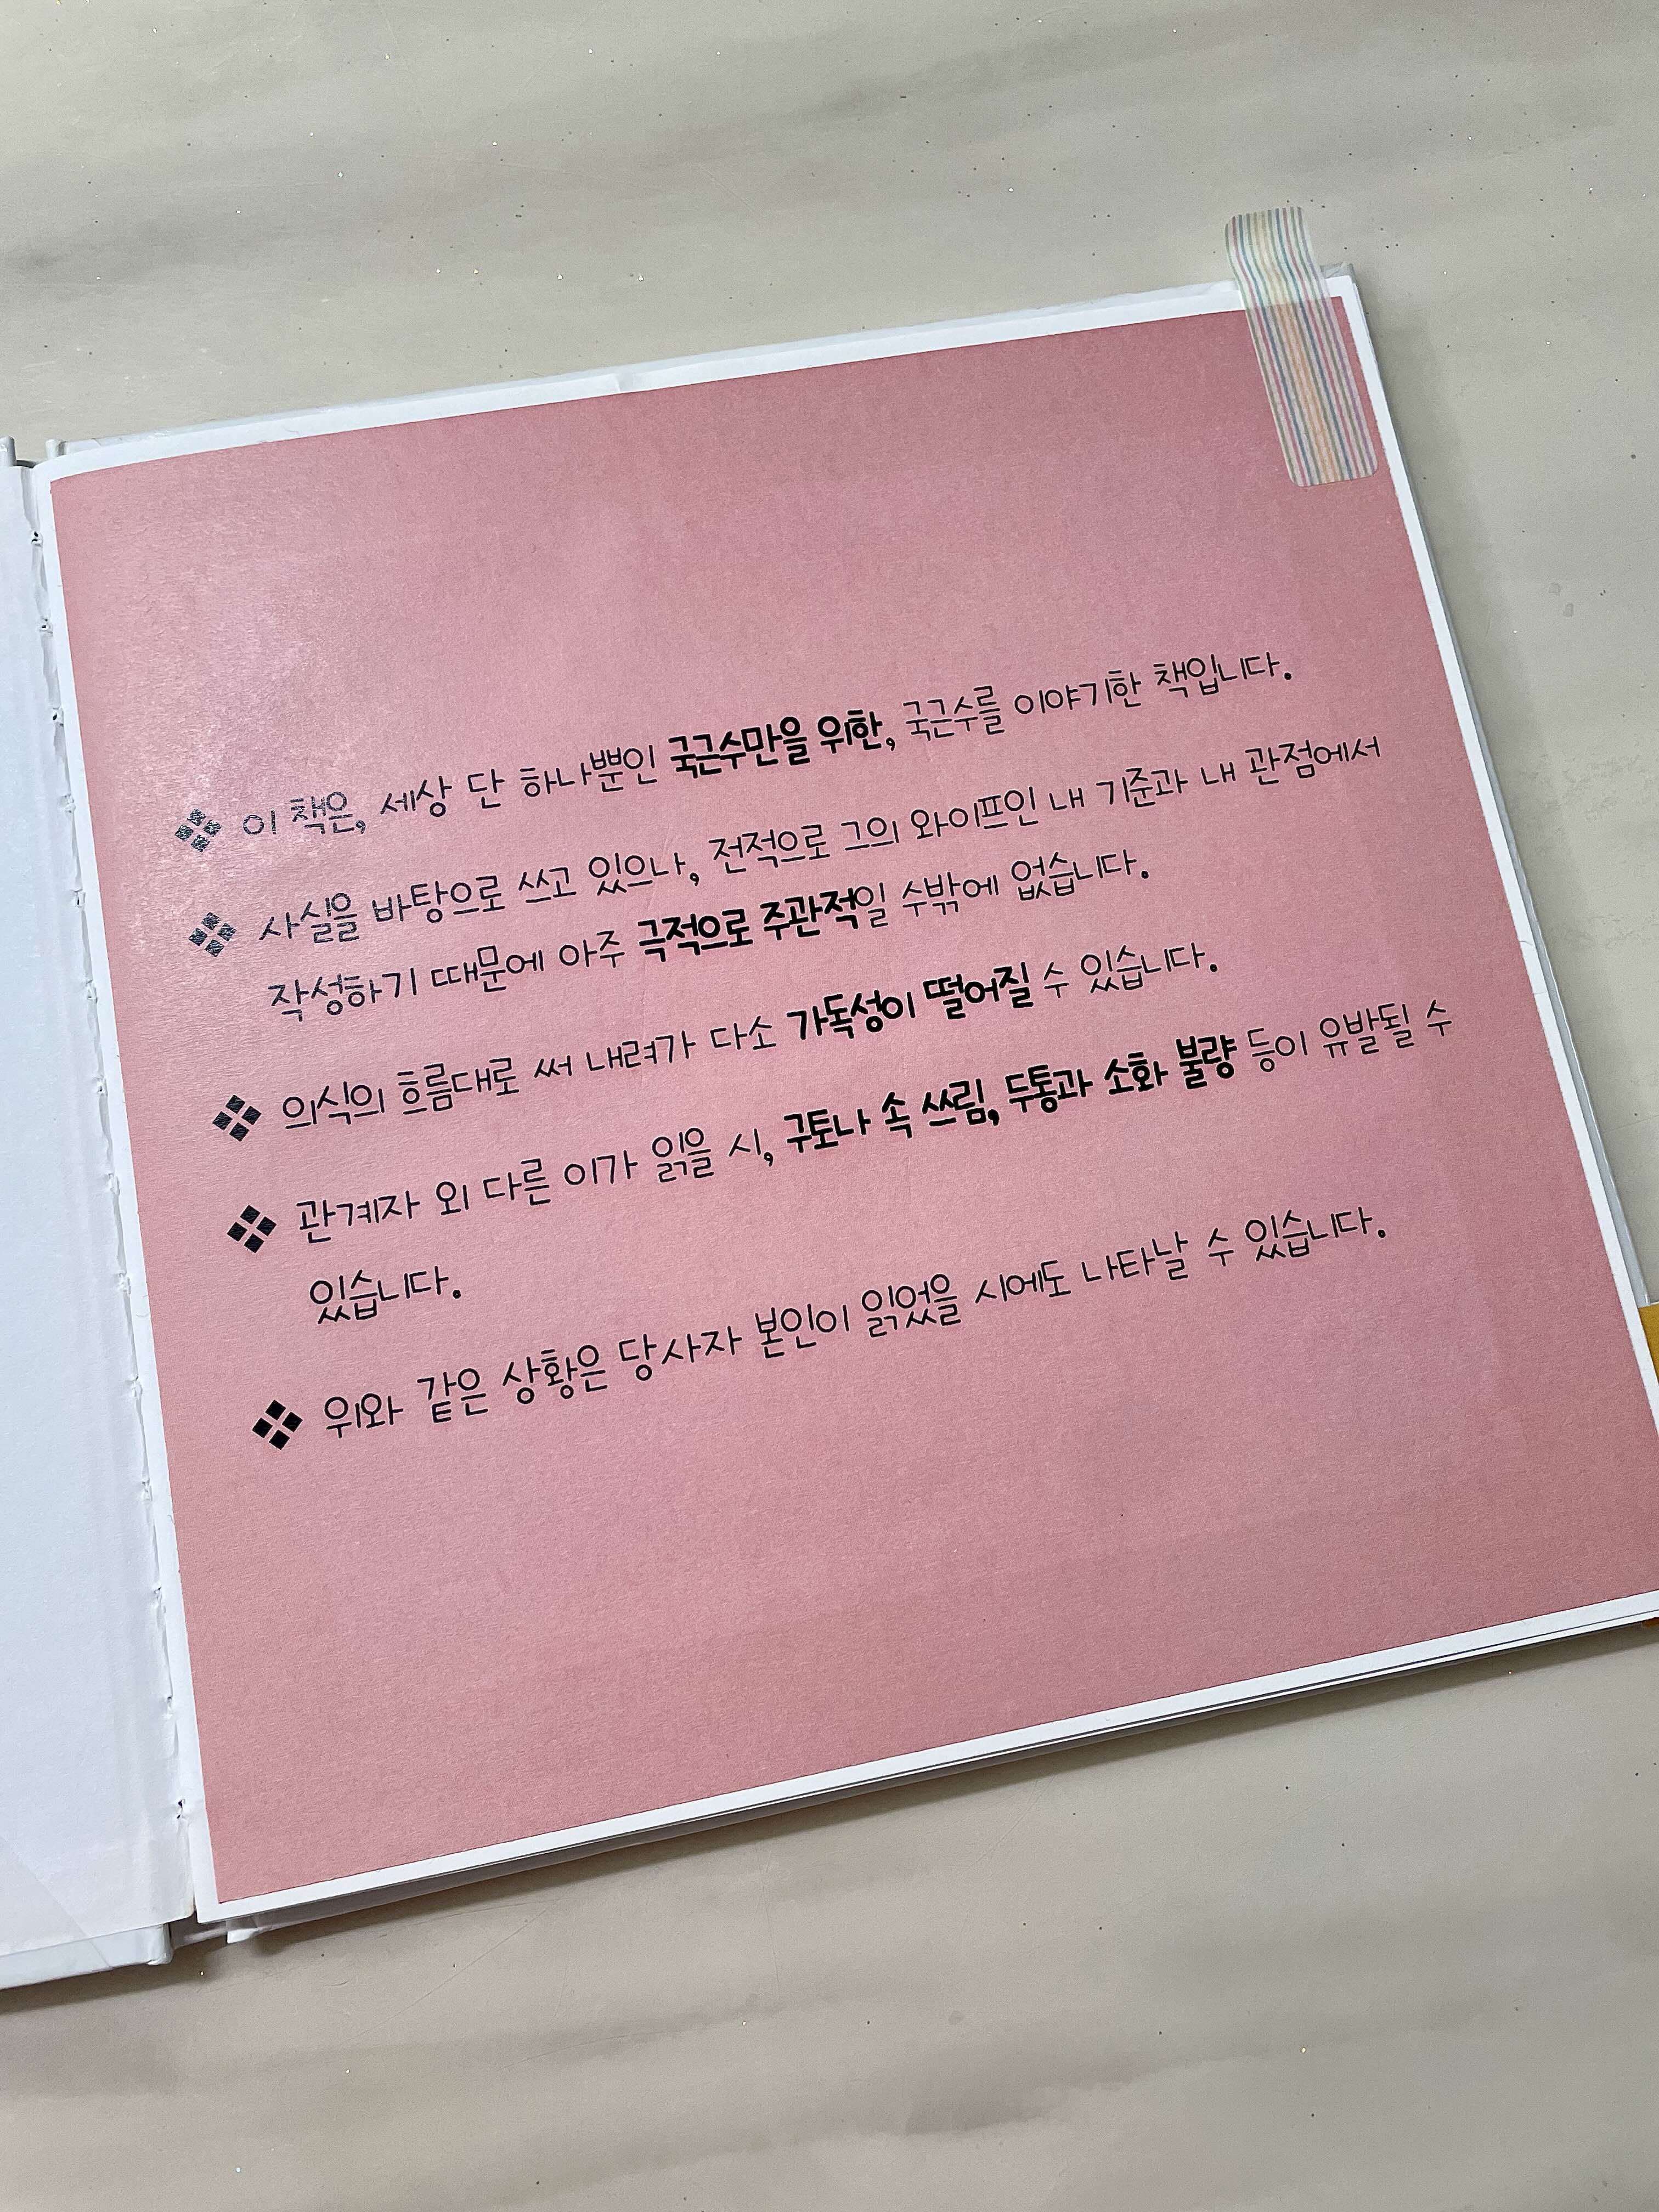 ❖ 이 책은, 세상 단 하나뿐인 국근수만을 위한, 국근수를 이야기한 책입니다.
❖ 사실을 바탕으로 쓰고 있으나, 전적으로 그의 와이프인 내 기준과 내 관점에서
작성하기 때문에 아주 극적으로 주관적일 수밖에 없습니다.
❖ 의식의 흐름대로 써 내려가 다소 가독성이 떨어질 수 있습니다.
❖ 관계자 외 다른 이가 읽을 시, 구토나 속 쓰림, 두통과 소화 불량 등이 유발될 수
있습니다.
❖ 위와 같은 상황은 당사자 본인이 읽었을 시에도 나타날 수 있습니다.